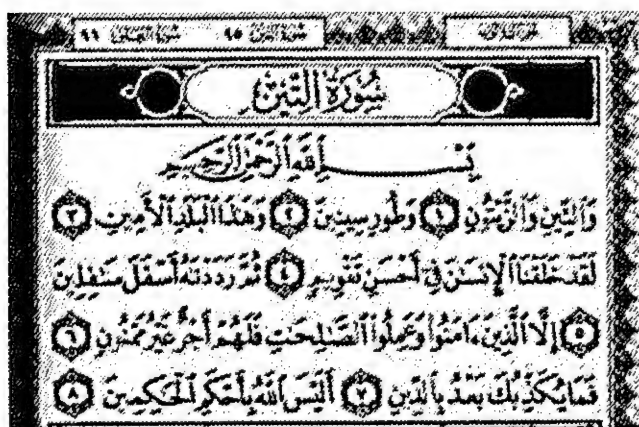 سُورَةُ العَلَقِ ٩٦ سُورَةُ التِّينِ ٩٥
سُورَةُ التِّينِ
بِسْمِ اللَّهِ الرَّحْمَٰنِ الرَّحِيمِ
وَالتِّينِ وَالزَّيْتُونِ ١ وَطُورِ سِينِينَ ٢ وَهَٰذَا الْبَلَدِ الْأَمِينِ ٣
لَقَدْ خَلَقْنَا الْإِنسَٰنَ فِي أَحْسَنِ تَقْوِيمٍ ٤ ثُمَّ رَدَدْنَٰهُ أَسْفَلَ سَٰفِلِينَ
٥ إِلَّا الَّذِينَ ءَامَنُوا وَعَمِلُوا الصَّٰلِحَٰتِ فَلَهُمْ أَجْرٌ غَيْرُ مَمْنُونٍ ٦
فَمَا يُكَذِّبُكَ بَعْدُ بِالدِّينِ ٧ أَلَيْسَ اللَّهُ بِأَحْكَمِ الْحَٰكِمِينَ ٨